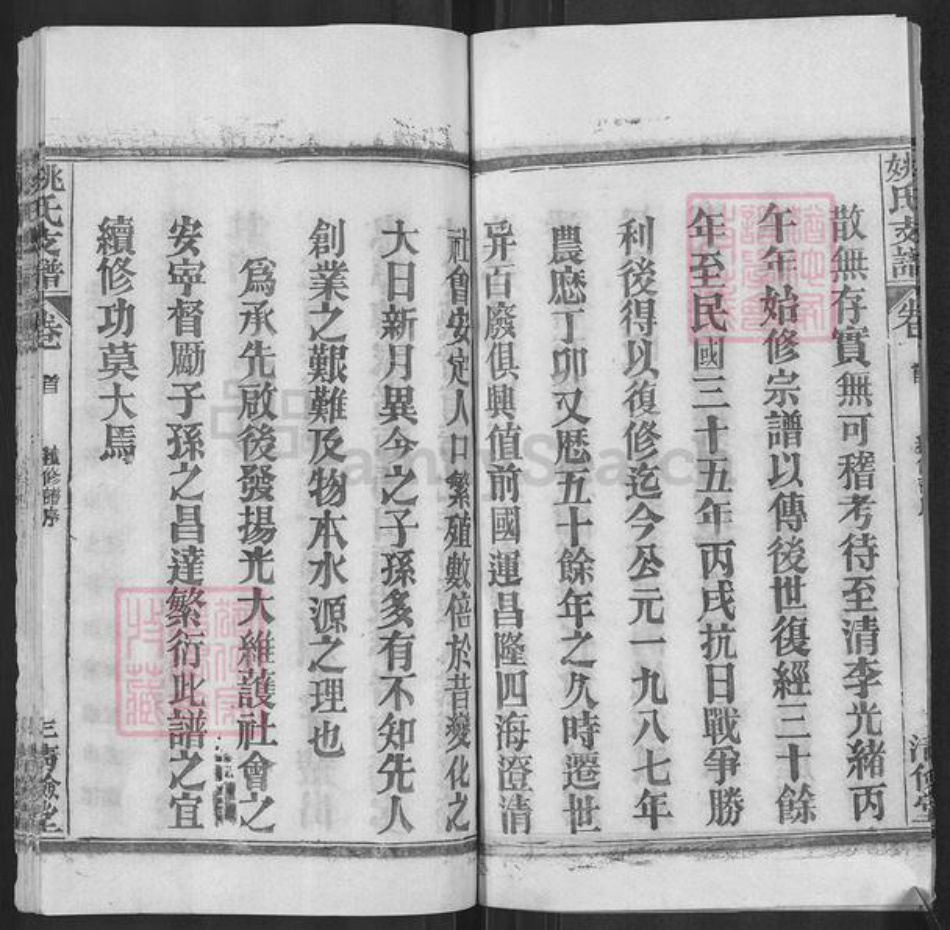 姚氏支譜 卷 首
散無存實無可稽考待至清季光緒丙
午年始修宗譜以傳後世復經三十餘
年至民國三十五年丙戌抗日戰爭勝
利後得以復修迄今公元一九八七年
農歷丁卯又歷五十餘年之久時遷世
异百廢俱興值前國運昌隆四海澄清
社會安定人口繁殖數倍於昔變化之
大日新月異今之子孫多有不知先人
創業之艱難及物本水源之理也
爲承先啟後發揚光大維護社會之
安寧督勵子孫之昌達繁衍此譜之宜
續修功莫大焉
姚氏支譜 卷 首 修譜序
FamilySearch